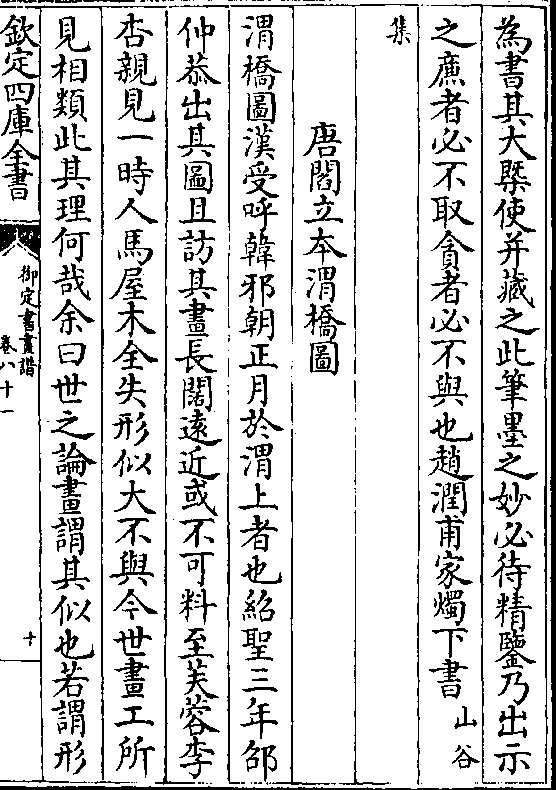 為書其大槩使并藏之此筆墨之妙必待精鑒乃出示
之廉者必不取貪者必不與也趙潤甫家燭下書山谷
集
唐閻立本渭橋圖
渭橋圖漢受呼韓邪朝正月於渭上者也紹聖三年邵
仲恭出其圖且訪其畫長闊遠近或不可料至芙蓉李
杏親見一時人馬屋木全失形似大不與今世畫工所
見相類此其理何哉余曰世之論畫謂其似也若謂形
欽定四庫全書
御定書畫譜
卷八十一
十